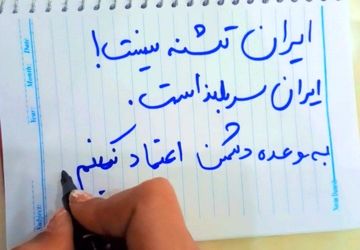 ایران تشنه نیست!
ایران سربلند است.
به وعده دشمن اعتماد نکنیم
Year: Month: Date:
Subject: